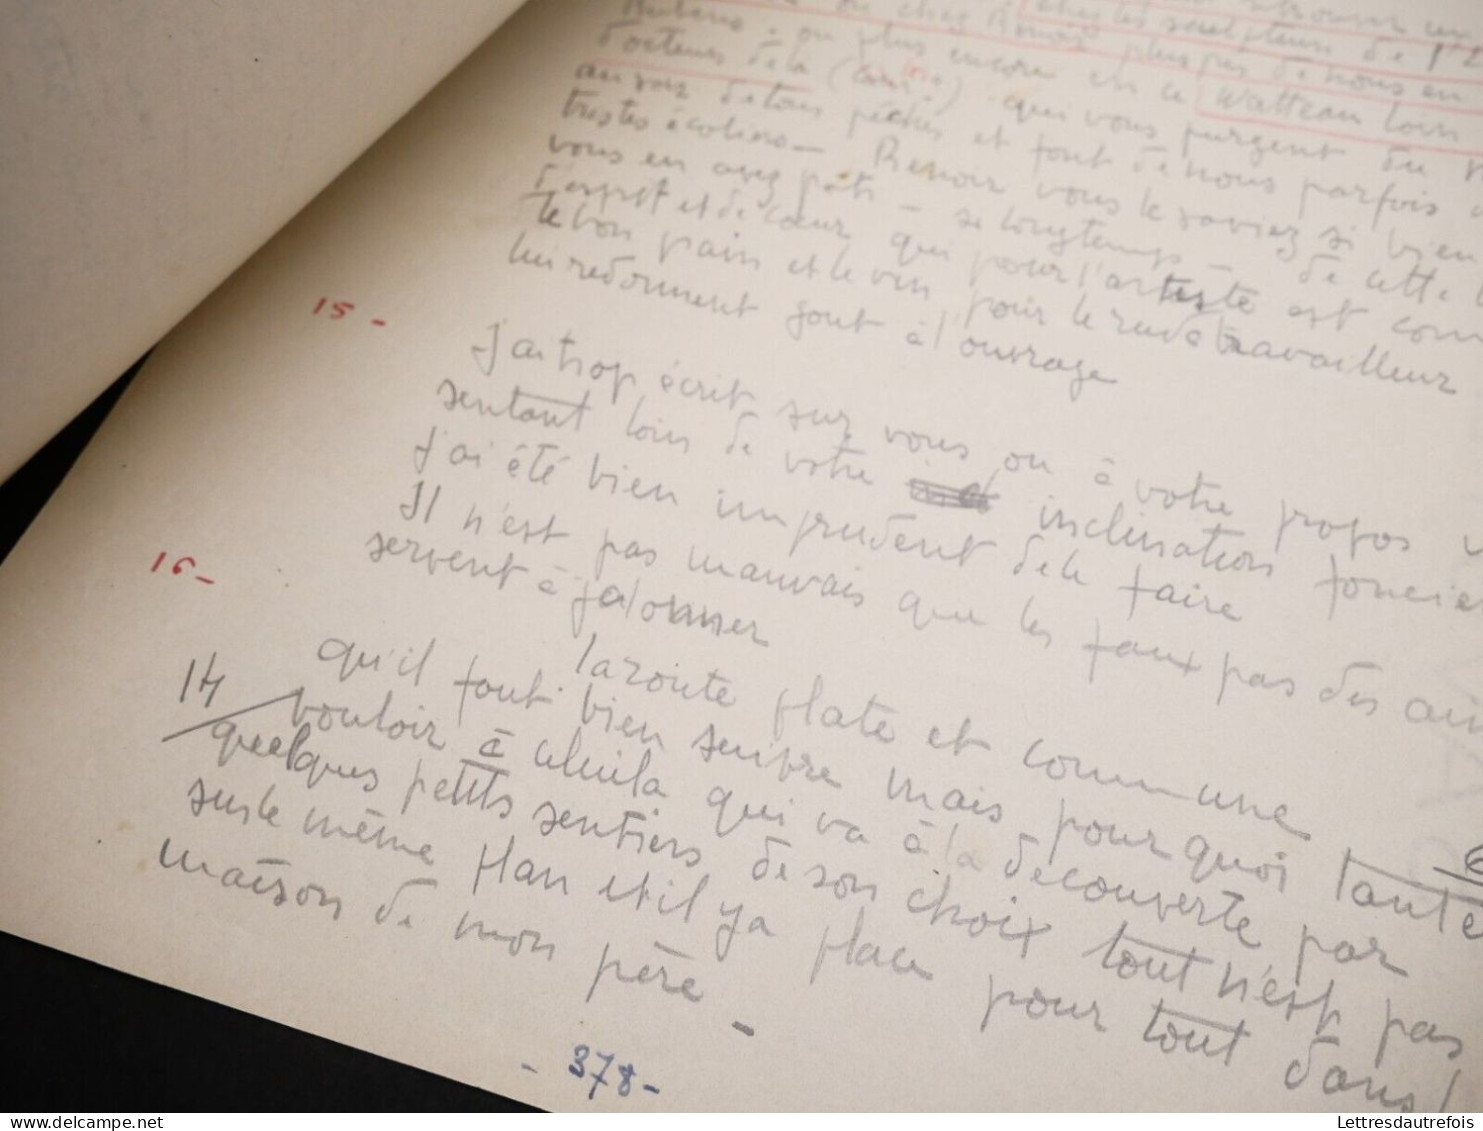 chez les sculpteurs de l'
ou chez Renoir plus près de nous en
Rubens, ou plus encore en ce Watteau loin
docteurs de la ( ) qui vous purgent du
de tous péchés et font de nous parfois
tristes écoliers — Renoir vous le saviez si bien
vous en avez pâti — si longtemps — de cette
d'esprit et de cœur qui pour l'artiste est com
le bon pain et le vin pour le rude travailleur
lui redonnent gout à l'ouvrage
15 -
J'ai trop écrit sur vous ou à votre propos
sentant loin de votre inclination foncie
J'ai été bien imprudent de le faire
Il n'est pas mauvais que les faux pas des
servent à jalonner
16 -
la route plate et commune
qu'il faut bien suivre mais pourquoi tant
14
vouloir à celui là qui va à la découverte par
quelques petits sentiers de son choix tout n'est pas
sur le même plan et il y a place pour tout dans l
maison de mon père -
- 378 -
Lettresdautrefois